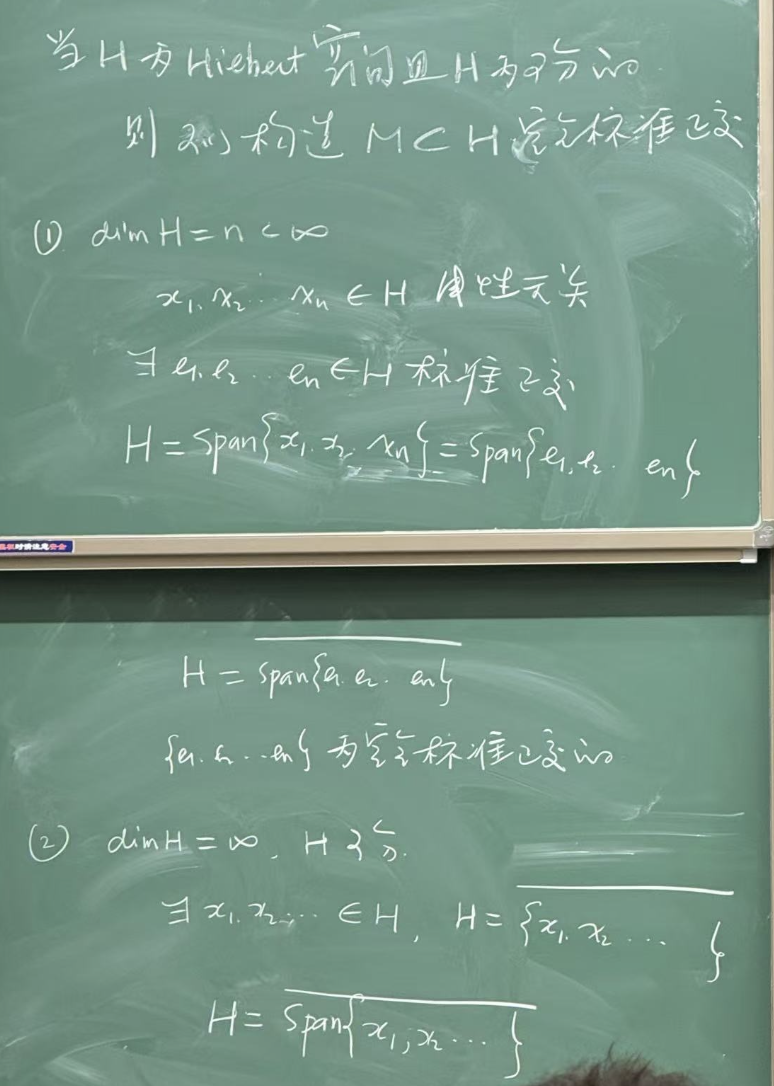 当H为Hilbert空间且H为可分的
则可以构造M⊂H完全标准正交
(1) dim H = n < ∞
x₁, x₂ ... xₙ ∈ H 线性无关
∃ e₁, e₂ ... eₙ ∈ H 标准正交
H = span{x₁, x₂, xₙ} = span{e₁, e₂ ... eₙ}
H = \overline{span{e₁, e₂ ... eₙ}}
{e₁, e₂ ... eₙ} 为完全标准正交的
(2) dim H = ∞, H可分.
∃ x₁, x₂ ... ∈ H, H = \overline{{x₁, x₂ ... }}
H = \overline{span{x₁, x₂ ... }}